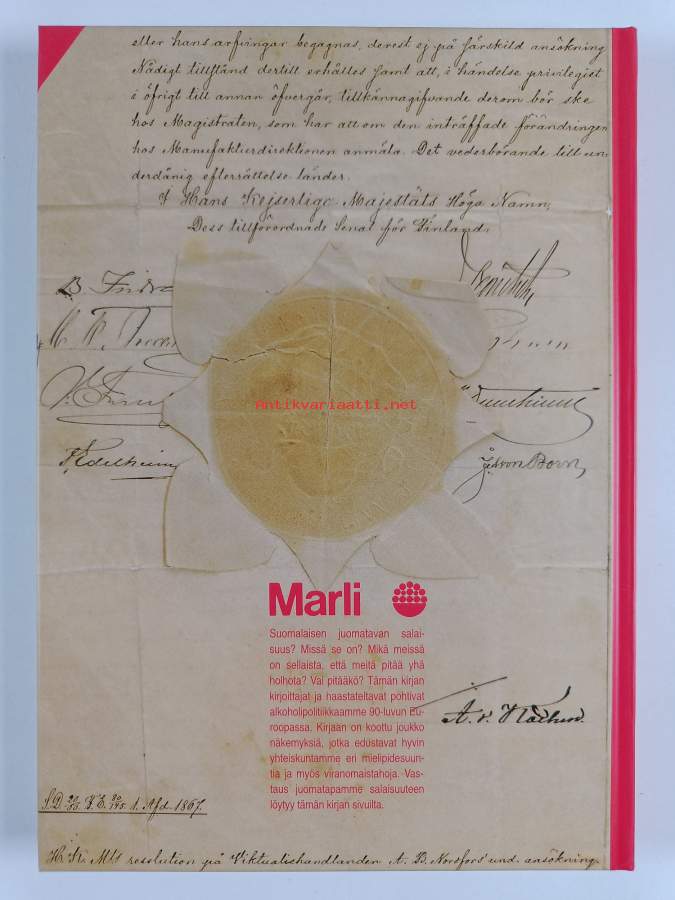 eller hans arfvingar begagnas, derest ej på särskild ansökning
Nådigt tillstånd dertill erhålles samt att, i händelse privilegiet
i öfrigt till annan öfvergår, tillkännagifvande derom bör ske
hos Magistraten, som har att om den inträffade förändringen
hos Manufakturdirektionen anmäla. Det vederbörande till un-
derdånig efterrättelse länder.
I Hans Kejserlige Majestäts Höga Namn,
Dess tillförordnade Senat för Finland.
Antikvariaatti.net
Edelheim
von Born
Marli
Suomalaisen juomatavan salai-
suus? Missä se on? Mikä meissä
on sellaista, että meitä pitää yhä
holhota? Vai pitääkö? Tämän kirjan
kirjoittajat ja haastateltavat pohtivat
alkoholipolitiikkaamme 90-luvun Eu-
roopassa. Kirjaan on koottu joukko
näkemyksiä, jotka edustavat hyvin
yhteiskuntamme eri mielipidesuun-
tia ja myös viranomaistahoja. Vas-
taus juomatapamme salaisuuteen
löytyy tämän kirjan sivuilta.
1. Afd. 1867.
resolution på Viktualiehandlanden A. B. Norsfors' und. ansökning